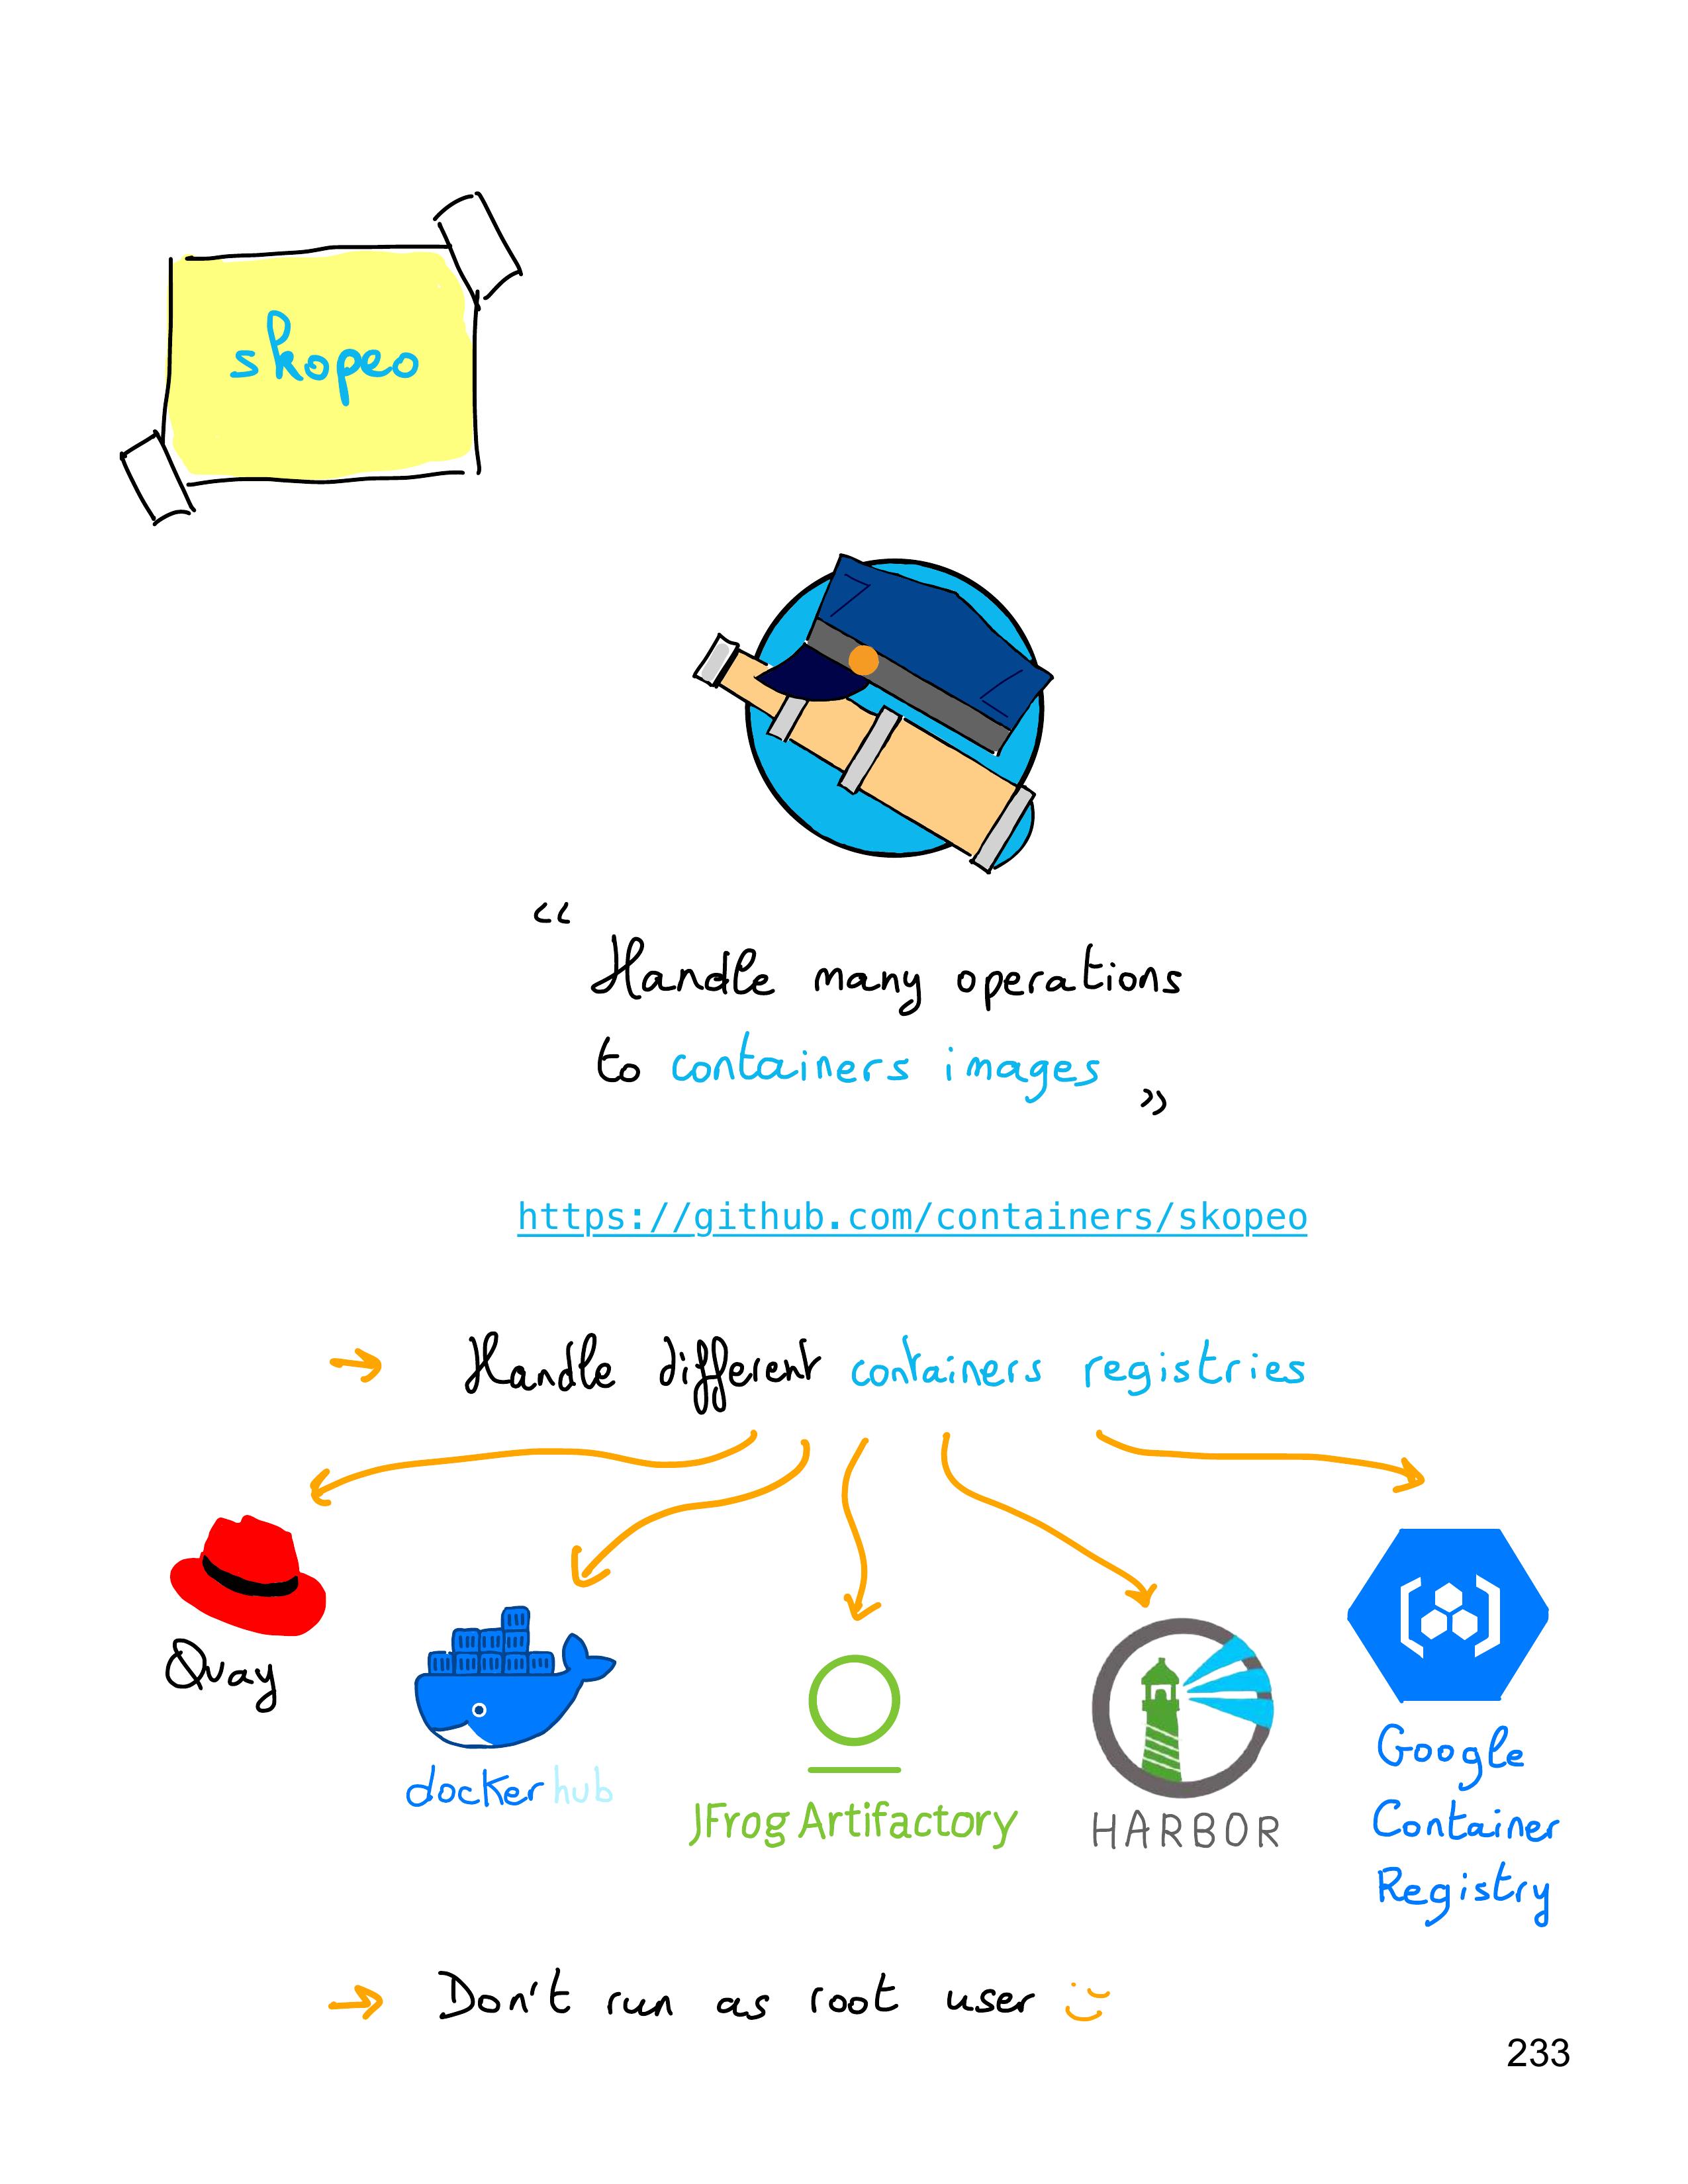 skopeo
“
Handle many operations
to containers images
”
https://github.com/containers/skopeo
→ Handle different containers registries
Quay
dockerhub
JFrog Artifactory
HARBOR
Google
Container
Registry
→ Don't run as root user
233